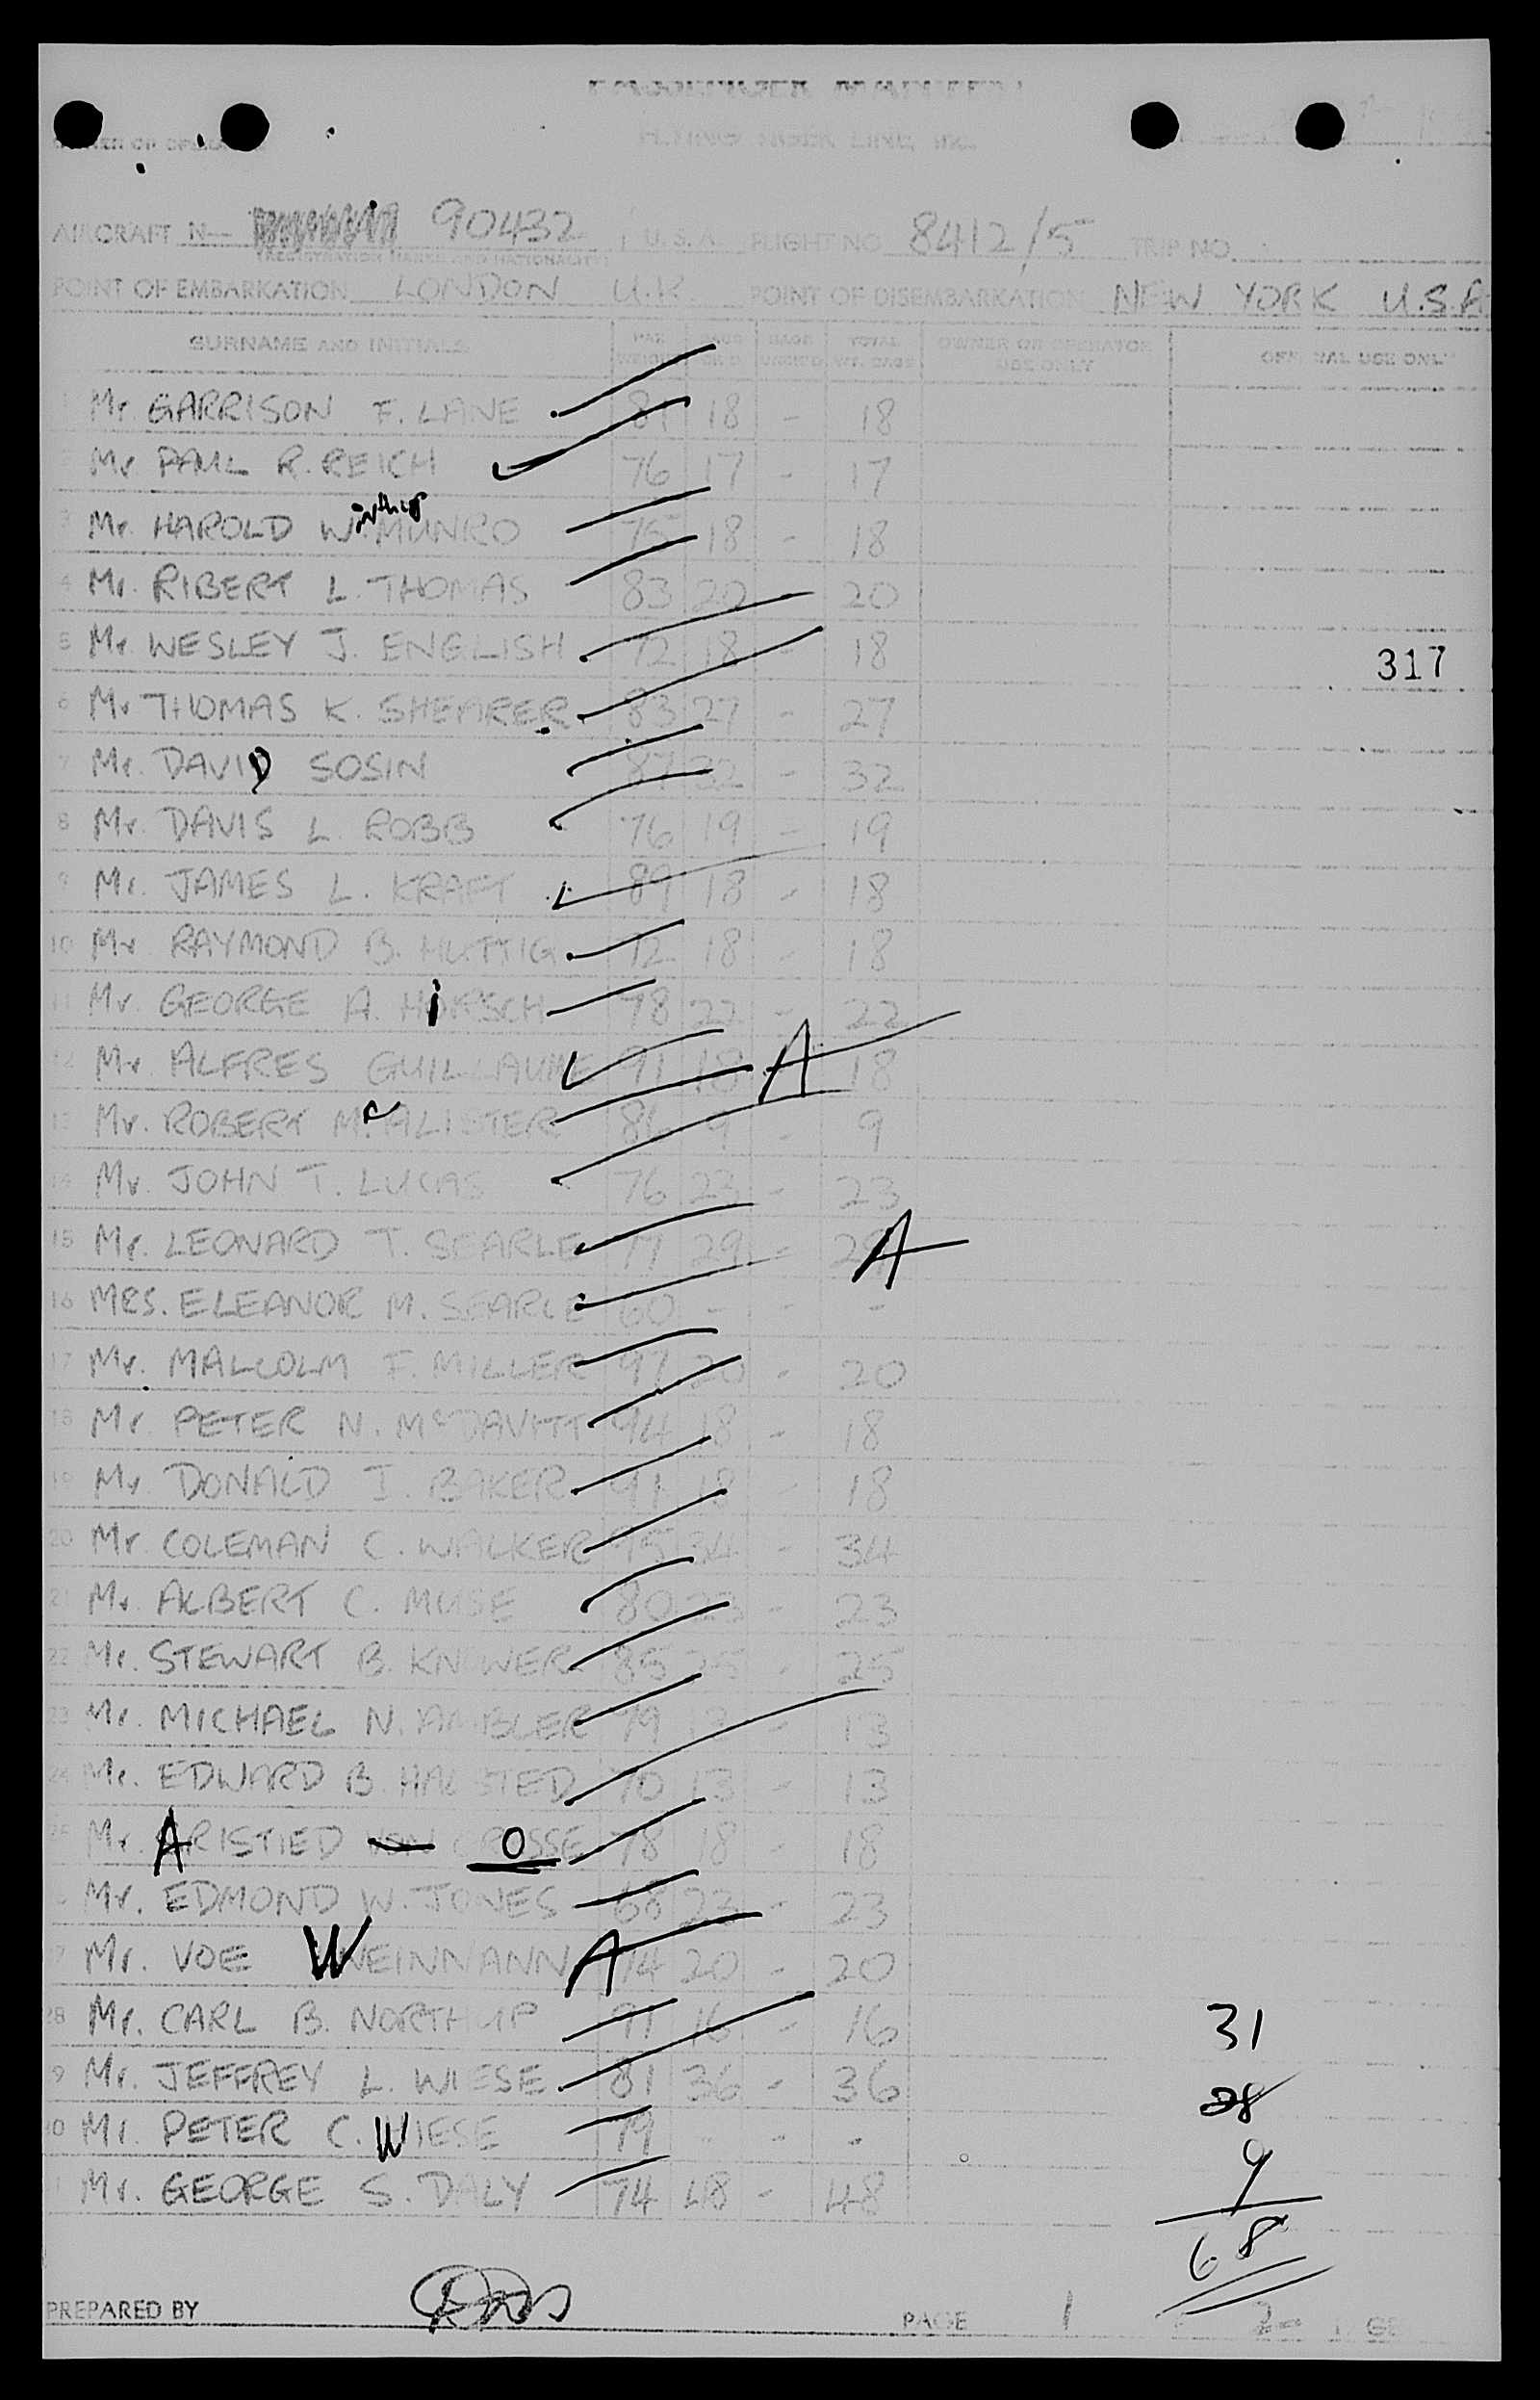 PASSENGER MANIFEST
FLYING TIGER LINE, INC.
OWNER OR OPERATOR
AIRCRAFT N— 90432 U.S.A. FLIGHT NO 8412/5 TRIP NO.
(REGISTRATION MARKS AND NATIONALITY)
POINT OF EMBARKATION LONDON U.K. POINT OF DISEMBARKATION NEW YORK U.S.A
SURNAME AND INITIALS PAX WEIGHT BAGS UNCHCD TOTAL WT. BAGS OWNER OR OPERATOR USE ONLY OFFICIAL USE ONLY
1 Mr GARRISON F. LANE 81 18 - 18
2 Mr PAUL R. REICH 76 17 - 17
3 Mr. HAROLD W. MUNRO 75 18 - 18
4 Mr. RIBERT L. THOMAS 83 20 - 20
5 Mr WESLEY J. ENGLISH 72 18 - 18
317
6 Mr THOMAS K. SHEARER 83 27 - 27
7 Mr. DAVID SOSIN 87 32 - 32
8 Mr. DAVIS L. ROBB 76 19 - 19
9 Mr. JAMES L. KRAFT 89 18 - 18
10 Mr RAYMOND B. HUTTIG 72 18 - 18
11 Mr. GEORGE A. HIRSCH 78 22 - 22
12 Mr ALFRES GUILLAUME 91 18 A 18
13 Mr. ROBERT Mc ALISTER 86 9 - 9
14 Mr. JOHN T. LUCAS 76 23 - 23
15 Mr. LEONARD T. SEARLE 77 29 - 29 A
16 MRS. ELEANOR M. SEARLE 60 - - -
17 Mr. MALCOLM F. MILLER 97 20 - 20
18 Mr PETER N. McDAVITT 94 18 - 18
19 Mr DONALD I. BAKER 91 18 - 18
20 Mr COLEMAN C. WALKER 95 34 - 34
21 Mr ALBERT C. MUSE 80 23 - 23
22 Mr. STEWART B. KNOWER 85 25 - 25
23 Mr. MICHAEL N. AMBLER 79 13 - 13
24 Mr. EDWARD B. HALSTED 70 13 - 13
25 Mr ARISTIED VON GROSSE 78 18 - 18
26 Mr. EDMOND W. JONES 68 23 - 23
27 Mr. VOE WEINNANN A 74 20 - 20
28 Mr. CARL B. NORTHUP 91 16 - 16
31
29 Mr. JEFFREY L. WIESE 81 36 - 36
28
30 Mr. PETER C. WIESE 79 - - -
9
31 Mr. GEORGE S. DALY 74 48 - 48
68
PREPARED BY PAGE 1 2